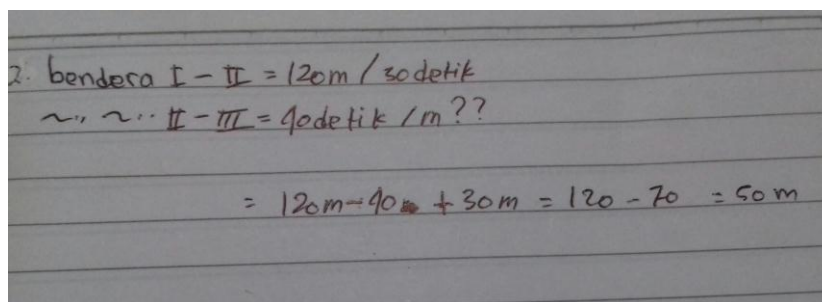 2. bendera I - II = 120m / 30 detik
~,, ~.. II - III = 40 detik / m ??
= 120m - 40m + 30m = 120 - 70 = 50 m